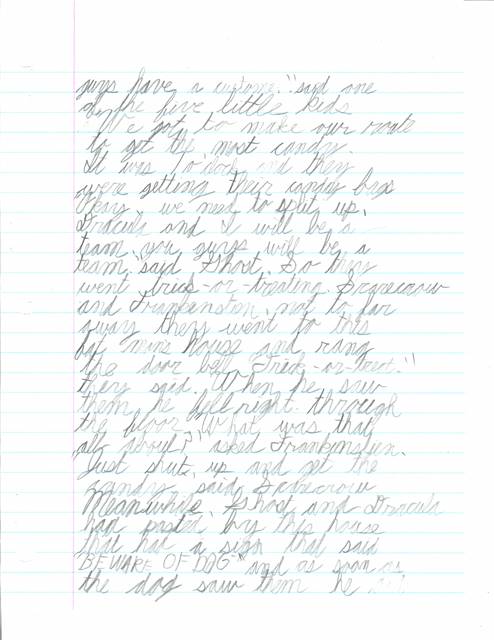 guys have a custome." said one
of the five little kids
We got to make our route
to get the most candy.
It was 7 o'clock and they
were getting their candy bags
Okay, we need to split up.
Dracula and I will be a
team you guys will be a
team." said Ghost. So they
went trick-or-treating. Scarecrow
and Frankenstein, not to far
away they went to this
fat mans house and rang
the door bell Trick-or-treat."
they said. When he saw
them he fell right through
the floor "What was that
all about?" asked Frankinstein.
Just shut up and get the
candy said Scarecrow
Meanwhile, Ghost and Dracula
had pasted by this house
that had a sign that said
BEWARE OF DOG" and as soon as
the dog saw them he